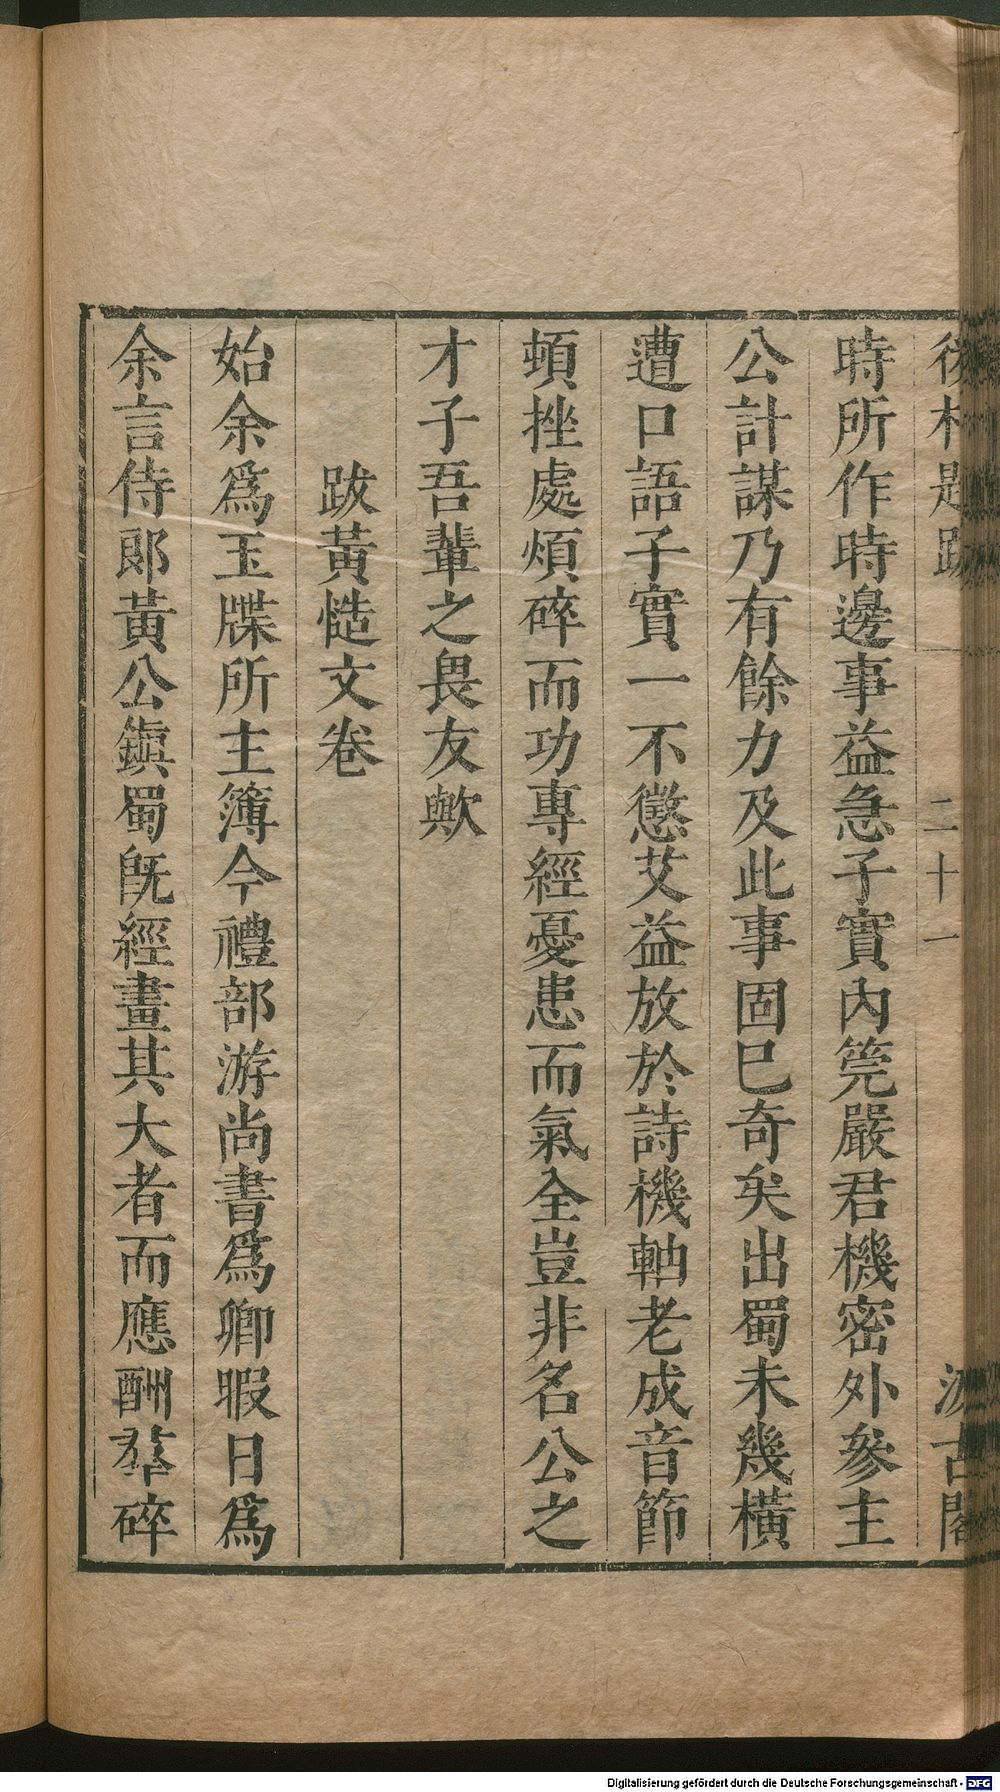 後村題跋 二十一 汲古閣
時所作時邊事益急子實內筦嚴君機密外參主
公計謀乃有餘力及此事固巳奇矣出蜀未幾橫
遭口語子實一不懲艾益放於詩機軸老成音節
頓挫處煩碎而功專經憂患而氣全豈非名公之
才子吾輩之畏友歟
跋黃慥文卷
始余爲玉牒所主簿今禮部游尚書爲卿暇日爲
余言侍郞黃公鎭蜀旣經畫其大者而應酬羣碎
Digitalisierung gefördert durch die Deutsche Forschungsgemeinschaft - DFG